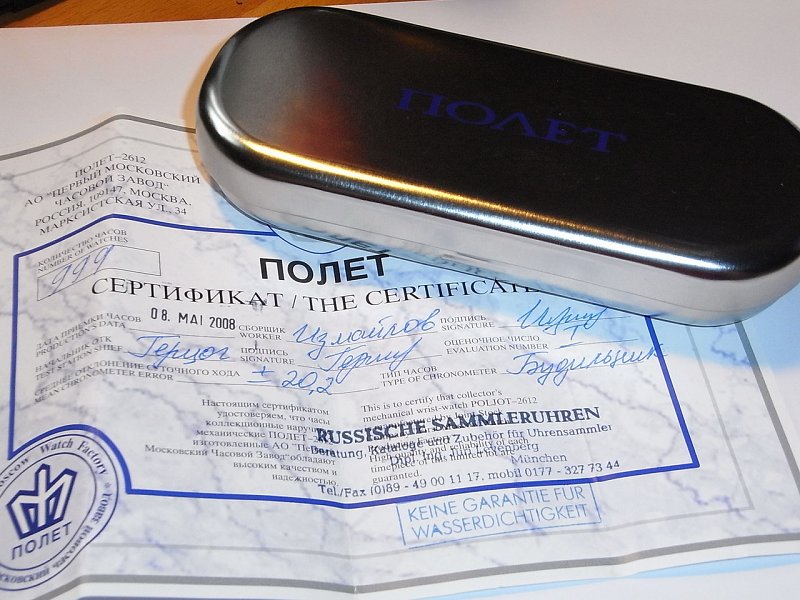 ПОЛЕТ
ПОЛЕТ-2612
АО "ПЕРВЫЙ МОСКОВСКИЙ
ЧАСОВОЙ ЗАВОД"
РОССИЯ, 109147, МОСКВА.
МАРКСИСТСКАЯ УЛ., 34
КОЛИЧЕСТВО ЧАСОВ
NUMBER OF WATCHES
999
ПОЛЕТ
СЕРТИФИКАТ / THE CERTIFICATE
ДАТА ПРИЕМКИ ЧАСОВ 08. MAI 2008 СБОРЩИК Измайлов ПОДПИСЬ
PRODUCTION'S DATA WORKER SIGNATURE
НАЧАЛЬНИК ОТК Герцог ПОДПИСЬ ОЦЕНОЧНОЕ ЧИСЛО I
TEST STATION SHEF SIGNATURE EVALUATION NUMBER
СРЕДНЕЕ ОТКЛОНЕНИЕ СУТОЧНОГО ХОДА ± 20,2 ТИП ЧАСОВ Будильник
MEAN CHRONOMETER ERROR TYPE OF CHRONOMETER
Настоящим сертификатом
удостоверяем, что часы
коллекционные наручные
механические ПОЛЕТ
изготовленные АО "Первый
Московский Часовой Завод" обладают
высоким качеством и
надежностью.
This is to certify that collector's
mechanical wrist-watch POLJOT-2612
quality and reliability of each
timepiece of this
guaranteed.
RUSSISCHE SAMMLERUHREN
Beratung, Kataloge und Zubehör für Uhrensammler
München
Tel./Fax (0)89 - 49 00 11 17, mobil 0177 - 327 73 44
KEINE GARANTIE FÜR
WASSERDICHTIGKEIT
Moscow Watch Factory
ПОЛЕТ
Московский часовой